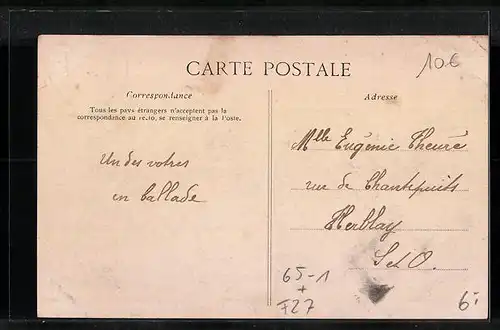 10€
CARTE POSTALE
Correspondance
Tous les pays étrangers n'acceptent pas la
correspondance au recto, se renseigner à la Poste.
Un des votres
en ballade
Adresse
Mlle Eugénie Theuré
rue de Chantepuits
Herblay
S et O.
65-1
+
F27
6: